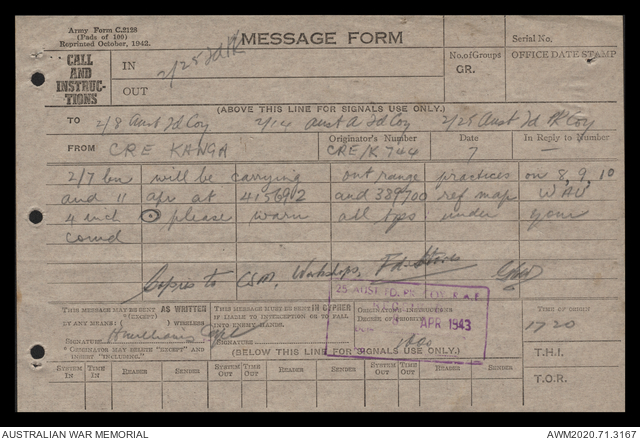 Army Form C.2128
(Pads of 100)
Reprinted October, 1942.
MESSAGE FORM
Serial No.
CALL AND INSTRUC- TIONS
IN
2/25 Fd Pk
OUT
No. of Groups
GR.
OFFICE DATE STAMP
(ABOVE THIS LINE FOR SIGNALS USE ONLY.)
TO 2/8 Aust Fd Coy 2/14 Aust A Fd Coy 2/25 Aust Fd Pk Coy
FROM CRE KANGA Originator's Number CRE/K 744 Date 7 In Reply to Number —
2/7 bn will be carrying out range practices on 8, 9, 10
and 11 apr at 415692 and 389700 ref map WAU
4 inch please warn all tps under your
comd
Copies to CSM, Workshops, Fd. Stores
THIS MESSAGE MAY BE SENT AS WRITTEN
(EXCEPT)
BY ANY MEANS ( ) WIRELESS
SIGNATURE
*ORIGINATOR MAY SELECT "EXCEPT" AND
INSERT "INCLUDING."
THIS MESSAGE MUST BE SENT IN CYPHER
IF LIABLE TO INTERCEPTION OR TO FALL
INTO ENEMY HANDS.
SIGNATURE
ORIGINATOR'S INSTRUCTIONS
DEGREE OF PRIORITY
25 AUST. FD. PK COY R.A.E.
APR 1943
TIME OF ORIGIN
1720
T.H.I.
T.O.R.
(BELOW THIS LINE FOR SIGNALS USE ONLY.)
SYSTEM IN TIME IN READER SENDER SYSTEM OUT TIME OUT READER SENDER SYSTEM OUT TIME OUT READER SENDER
AUSTRALIAN WAR MEMORIAL
AWM2020.71.3167